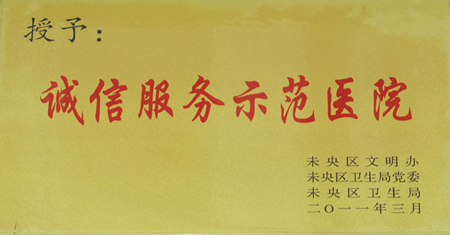 授予：
诚信服务示范医院
未央区文明办
未央区卫生局党委
未央区卫生局
二〇一一年三月